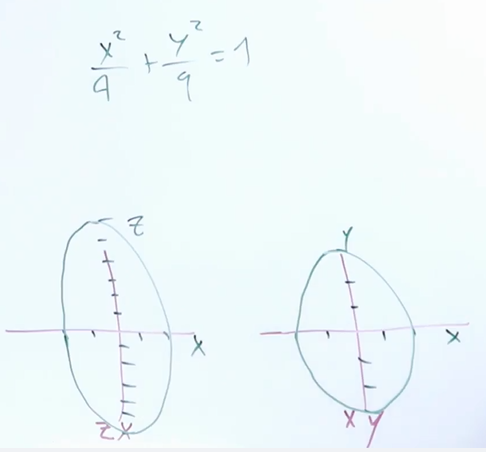 x²/4 + y²/9 = 1
Z
Y
X
X
ZX
X Y